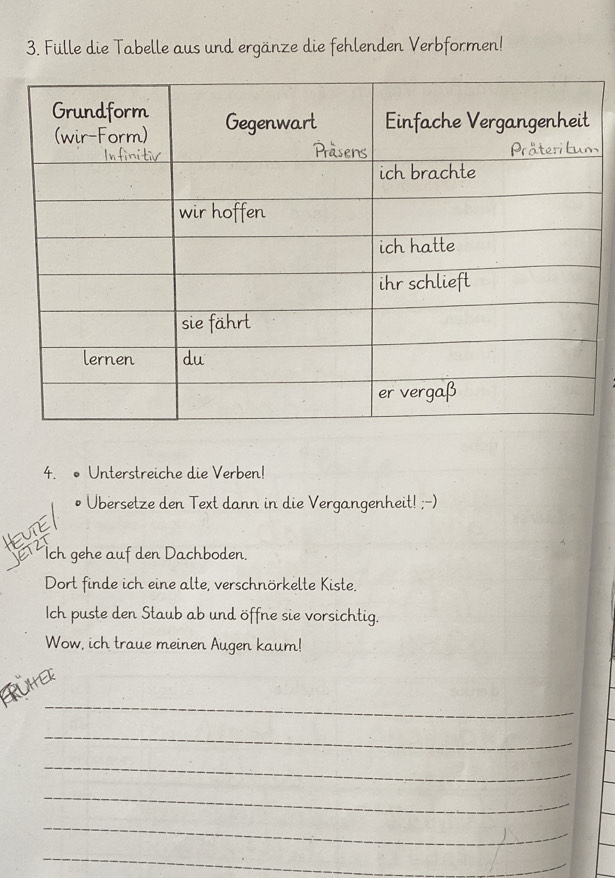 3. Fülle die Tabelle aus und ergänze die fehlenden Verbformen!
Grundform
(wir-Form)
Infinitiv
Gegenwart
Präsens
Einfache Vergangenheit
Präteritum
ich brachte
wir hoffen
ich hatte
ihr schlieft
sie fährt
lernen du
er vergaß
4. • Unterstreiche die Verben!
• Übersetze den Text dann in die Vergangenheit! ;-)
HEUTE/
JETZT
Ich gehe auf den Dachboden.
Dort finde ich eine alte, verschnörkelte Kiste.
Ich puste den Staub ab und öffne sie vorsichtig.
Wow, ich traue meinen Augen kaum!
FRÜHER